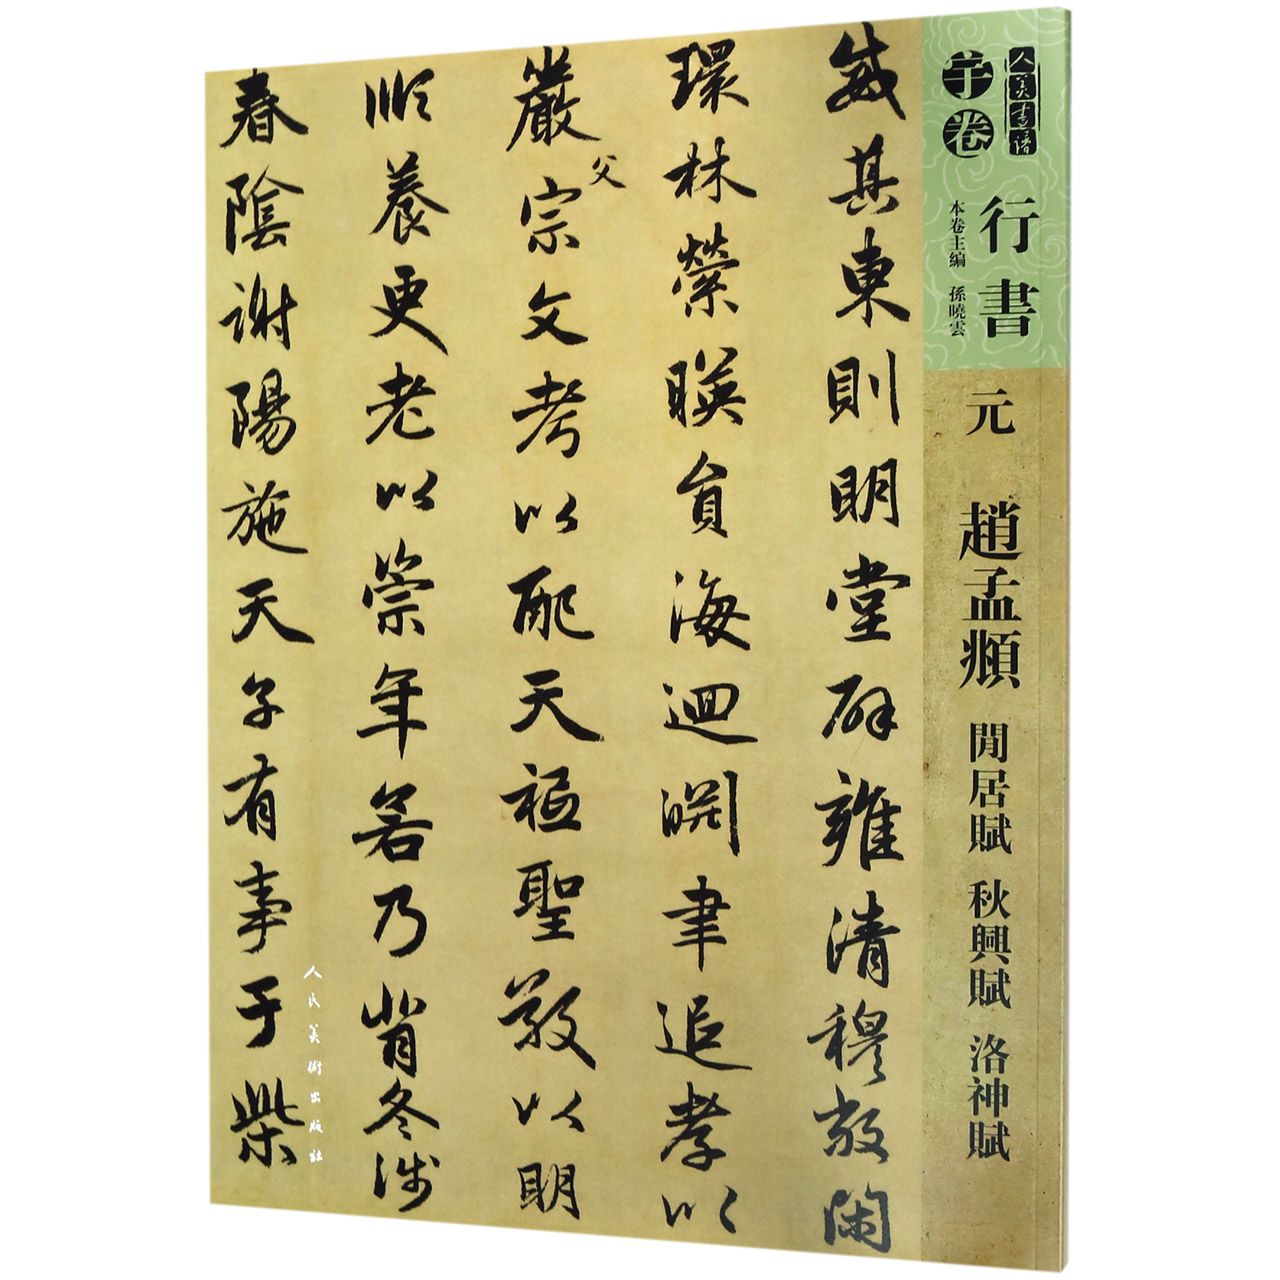 人美书谱
宇卷
行書
本卷主編 孫曉雲
元 趙孟頫 閒居賦 秋興賦 洛神賦
威其東則明堂辟雍清穆敞閑
環林縈暎員海迴淵聿追孝以
嚴父宗文考以配天祗聖敬以明
順養更老以崇年若乃背冬涉
春陰謝陽施天子有事于柴
人民美術出版社